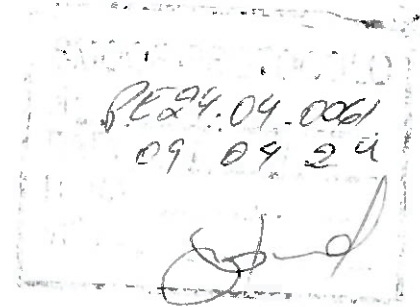 PE24.04.0061
09 04 24